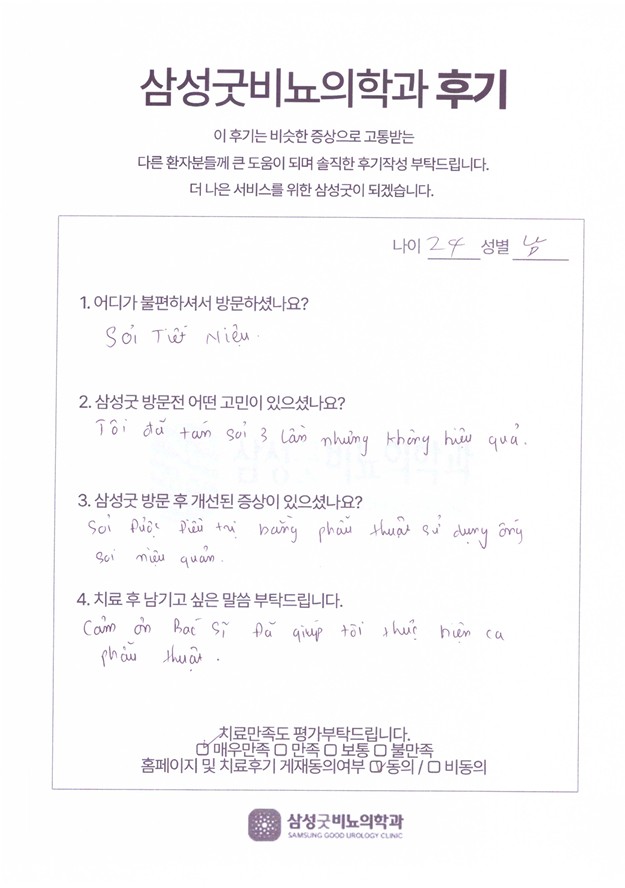 삼성굿비뇨의학과 후기
이 후기는 비슷한 증상으로 고통받는
다른 환자분들께 큰 도움이 되며 솔직한 후기작성 부탁드립니다.
더 나은 서비스를 위한 삼성굿이 되겠습니다.
나이 24 성별 남
1. 어디가 불편하셔서 방문하셨나요?
Sỏi Tiết Niệu.
2. 삼성굿 방문전 어떤 고민이 있으셨나요?
Tôi đã tán sỏi 3 lần nhưng không hiệu quả.
3. 삼성굿 방문 후 개선된 증상이 있으셨나요?
Sỏi Được Điều trị bằng phẫu thuật sử dụng ống
soi niệu quản.
4. 치료 후 남기고 싶은 말씀 부탁드립니다.
Cảm ơn Bác Sĩ Đã giúp tôi thực hiện ca
phẫu thuật.
치료만족도 평가부탁드립니다.
☑ 매우만족 ☐ 만족 ☐ 보통 ☐ 불만족
홈페이지 및 치료후기 게재동의여부 ☑ 동의 / ☐ 비동의
삼성굿비뇨의학과
SAMSUNG GOOD UROLOGY CLINIC